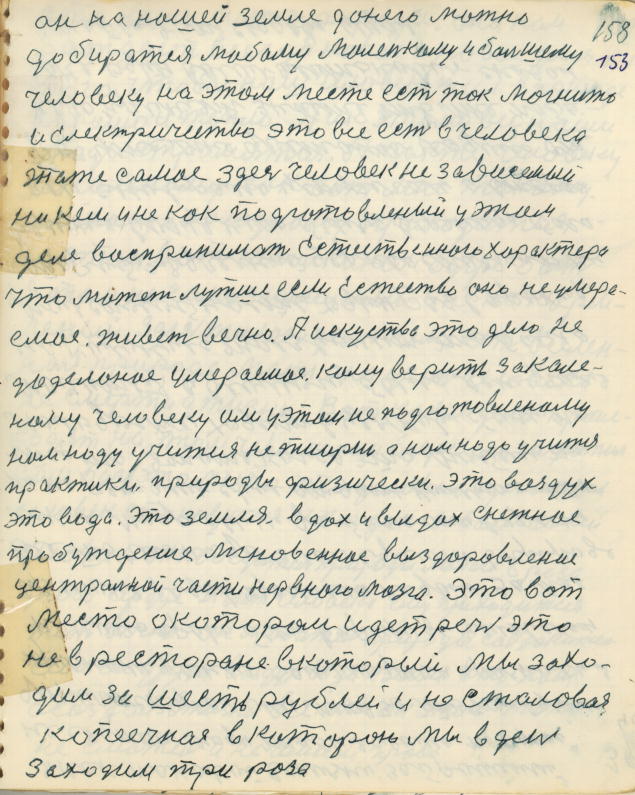 он на ношей земле донего можно
158
добиратся мабому молепкому и балшему
153
человеку на этом месте ест ток могнито
и електричество это все ест в человека
этаже самое здея человек не зависемый
ни кем и не кок подготовленый у этом
деле воспринимат Естественного характера
что может лутше если Естество оно не умера-
емое. живет вечно. А искуства это дело не
доделоное умераемое. кому верить закале-
ному человеку или у этом не подготовленому
ном ноду учится не тиории а ном нодо учится
практики. природы физически. это воздух
это вода. Это земля. вдох и выдох снежное
пробуждение мгновенное выздоровление
централной части нервного мозга. Это вот
место о котором идет реч это
не в ресторане вкоторый мы захо-
дим за шесть рублей и не сталовая
копеечная в которою мы в ден
заходим три роза